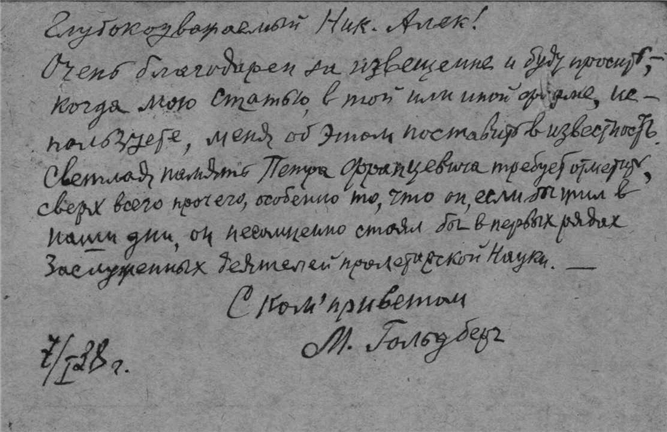 Глубокоуважаемый Ник. Алек!
Очень благодарен за извещение и буду просить, –
когда мою статью, в той или иной форме, ис-
пользуете, меня об этом поставить в известность.
Светлая память Петра Францевича требует отметить,
сверх всего прочего, особенно то, что он, если бы жил в
наши дни, он несомненно стоял бы в первых рядах
Заслуженных деятелей пролетарской Науки. —
С ком' приветом
М. Гольдберг
7/I 38 г.